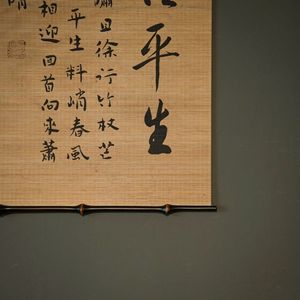 平生
嘯且徐行竹杖芒
平生料峭春風
相迎回首向來蕭
晴